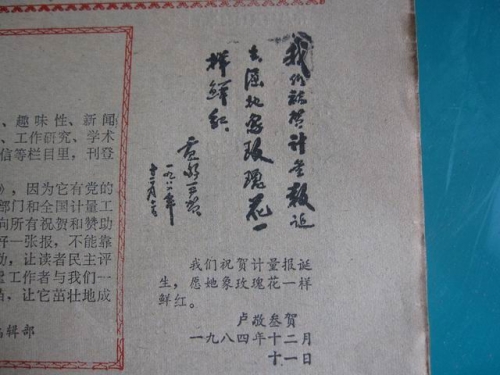 、趣味性、新闻
、工作研究、学术
信等栏目里，刊登
》，因为它有党的
部门和全国计量工
向所有祝贺和赞助
好一张报，不能靠
，让读者民主评
工作者与我们一
，让它茁壮地成
辑部
我们祝贺计量报诞
生愿她象玫瑰花一
样鲜红
卢敬叁贺
一九八四年
十二月十一日
我们祝贺计量报诞
生，愿她象玫瑰花一样
鲜红。
卢敬叁贺
一九八四年十二月
十一日